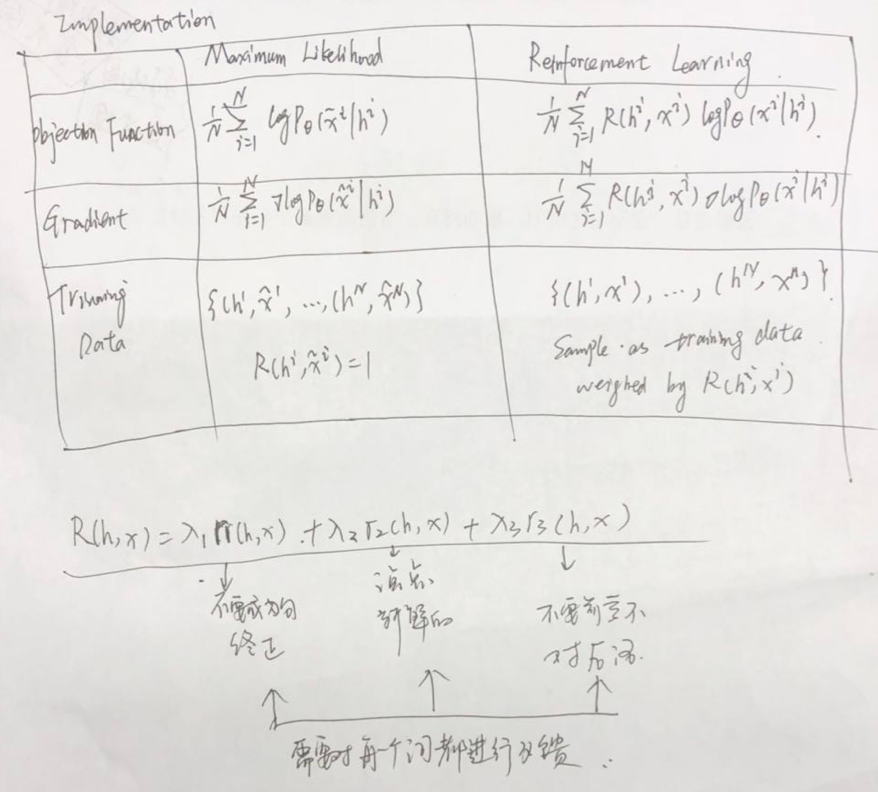 Implementation
Maximum Likelihood
Reinforcement Learning
Objection Function
$\frac{1}{N}\sum_{i=1}^{N} \log P_\theta(\hat{x}^i|h^i)$
$\frac{1}{N}\sum_{i=1}^{N} R(h^i, x^i) \log P_\theta(x^i|h^i)$
Gradient
$\frac{1}{N}\sum_{i=1}^{N} \nabla \log P_\theta(\hat{x}^i|h^i)$
$\frac{1}{N}\sum_{i=1}^{N} R(h^i, x^i) \nabla \log P_\theta(x^i|h^i)$
Training
Data
{(h¹, x̂¹, ..., (hᴺ, x̂ᴺ)}
R(hⁱ, x̂ⁱ) = 1
{(h¹, x¹), ..., (hᴺ, xᴺ)}
Sample as training data
weighed by R(hⁱ, xⁱ)
R(h,x) = λ₁r₁(h,x) + λ₂r₂(h,x) + λ₃r₃(h,x)
不要成为句
终正
新鲜的
不要前言不
对后语.
需要对每一个词都进行反馈